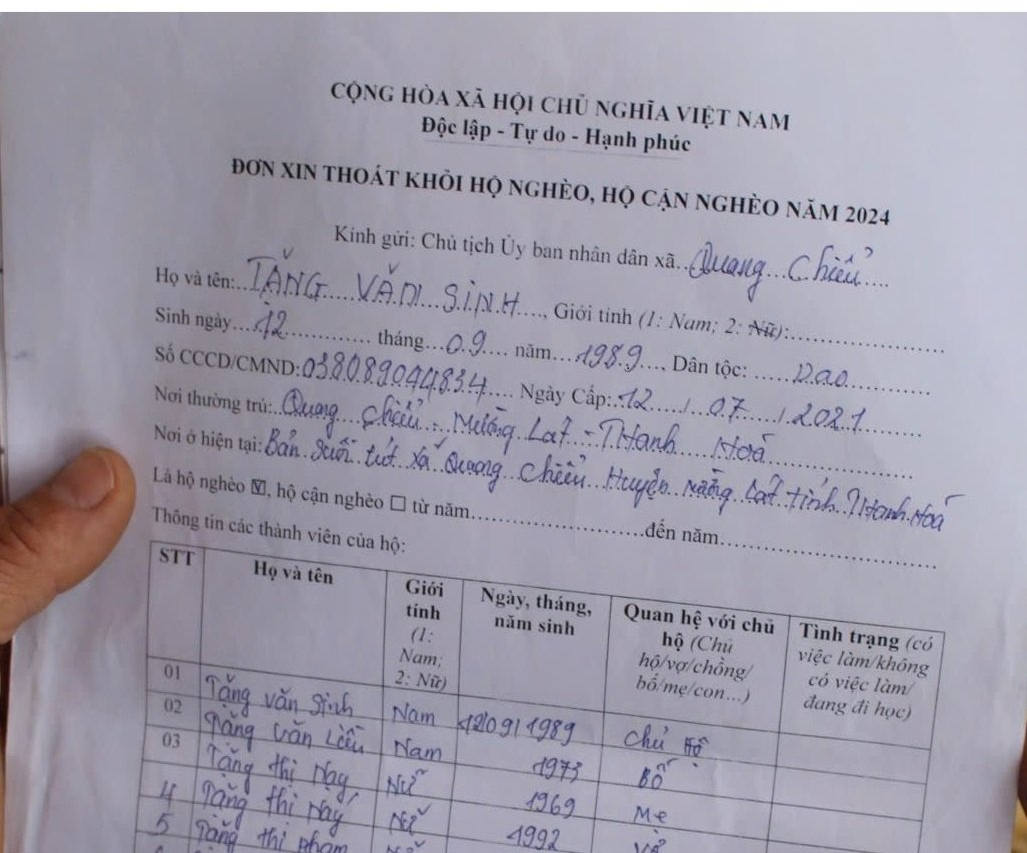 CỘNG HÒA XÃ HỘI CHỦ NGHĨA VIỆT NAM
Độc lập - Tự do - Hạnh phúc
ĐƠN XIN THOÁT KHỎI HỘ NGHÈO, HỘ CẬN NGHÈO NĂM 2024
Kính gửi: Chủ tịch Ủy ban nhân dân xã..Quang Chiểu....
Họ và tên:..TẶNG VĂN SINH...., Giới tính (1: Nam; 2: Nữ):..........
Sinh ngày...12........ tháng...09.... năm...1989...., Dân tộc: .....Dao..........
Số CCCD/CMND:038089044834.... Ngày Cấp:.12..../..07..../.2021........
Nơi thường trú:..Quang Chiểu - Mường Lát - Thanh Hoá..........
Nơi ở hiện tại:Bản suối tút xã Quang Chiểu Huyện Mường Lát tỉnh Thanh Hoá
Là hộ nghèo ☒, hộ cận nghèo ☐ từ năm..........đến năm..........
Thông tin các thành viên của hộ:
STT Họ và tên Giới tính (1: Nam; 2: Nữ) Ngày, tháng, năm sinh Quan hệ với chủ hộ (Chủ hộ/vợ/chồng/bố/mẹ/con...) Tình trạng (có việc làm/không có việc làm/đang đi học)
01 Tặng văn Sinh Nam 12/09/1989 Chủ Hộ
02 Tặng văn Liều Nam 1973 Bố
03 Tặng thị Nay Nữ 1969 Mẹ
4 Tặng thị Nảy Nữ 1992 Vợ
5 Tặng thị Phạm